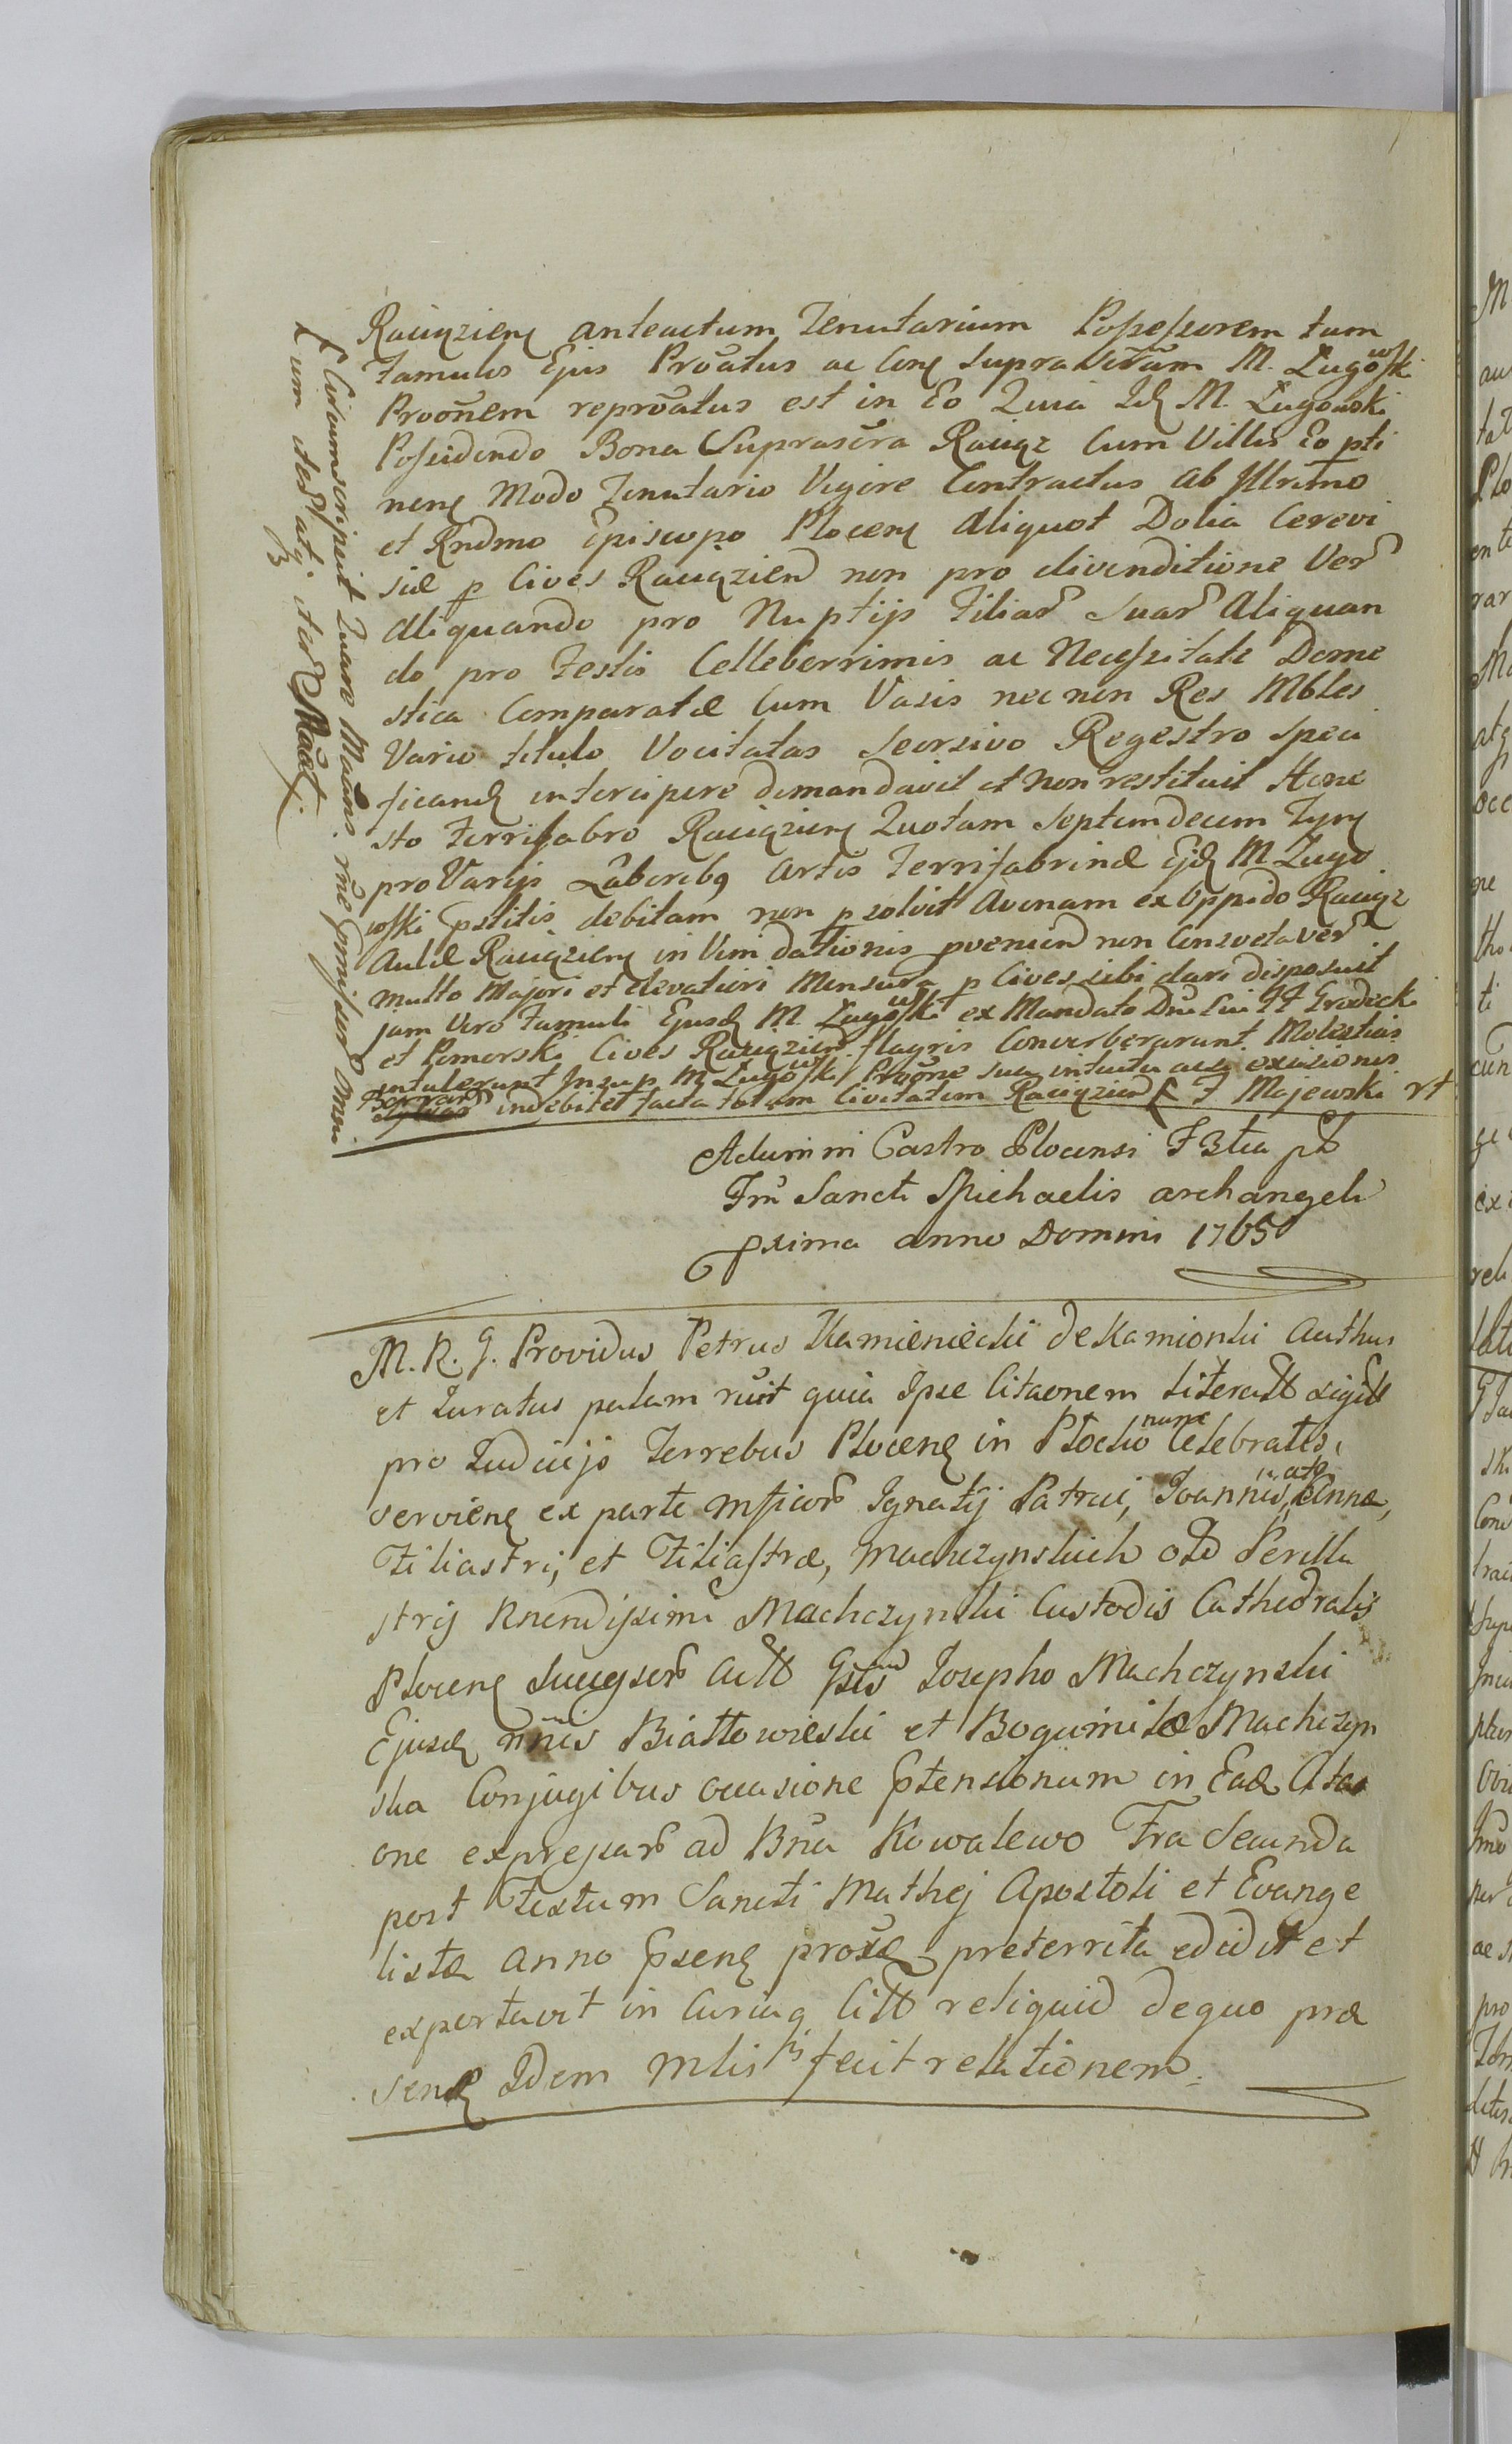 Raciązien anteactum Tenutarium Possessorem tum
Famulos Ejus Proatus ac Con Suprascriptam M. Lugowski
Proonem reproatus est in Eo Quia Id M. Lugowski
Possidendo Bona Suprascra Raciąz Cum Villis Eo pti
nen Modo Tenutario Vigore Contractus ab Illrmo
et Rndmo Episcopo Plocen aliquot Dolia Cerevi
siæ p Cives Raciązien non pro divenditione Ver
aliquando pro Nuptijs Filiar suar aliquan
do pro Festis Celleberrimis ac Necessitate Dome
stica Comparatæ Cum Vasis nec non Res Mbles
Vario titulo Vocitatas Seorsivo Regestro speci
ficand intercipere demandavit et non restituit Hone
sto Ferrifabro Raciązien Quotam Septemdecim Tyn
pro Varijs Laboribq Artis Ferrifabrinæ Ejd M Lugo
wski pstitis debitam non psolvit Avenam ex Oppido Raciąz
Aulæ Raciązien in Vim dationis provenien non Consveta ver
multo Majori et elevatiori Mensura p Cives sibi dari disposuit
jam Vero Famuli Ejusd M. Lugowski ex Mandato Dni sui FF Grodecki
et Pomorski Cives Raciązien flagris Converberarunt Molestias
intulerunt Insup M Lugowski Proone sua intuitu excisionis
Borrar indebite facta totam Civitatem Raciązien F Majewski rt
Circumscripsit Quare Matus rne pmissor omni
um iter atq iter Mact
Actum in Castro Plocensi F 3tia pt
Fm Sancti Michaelis archangeli
pxima anno Domini 1765
M. R. G. Providus Petrus Kamieniecki de Kamionki Authus
et Juratus palam rcuit quia Ipse Citaonem Literall sigill
pro Judicijs Terrebus Plocen in Płocko nunc Celebratis,
servien ex parte Mficor Ignatij Patrui, Joannis, ac Annæ,
Filiastri, et Filiastræ, Machczynskich old Perillu
stris Rnendissimi Machczynski Custodis Cathedralis
Plocen Successor Actt Gsis Josepho Machczynski
Ejusd nnis Białłowieski et Bogumiłæ Machczyn
ska Conjugibus occasione ptensionum in Ead Cita
one expressar ad Bna Kowalewo Fra Secunda
post Festum Sancti Mathej Apostoli et Evange
listæ anno psen proxe preterrita edidit et
exportavit in Curiaq Citt reliquid de quo præ
sens Idem Mlis fecit relationem.